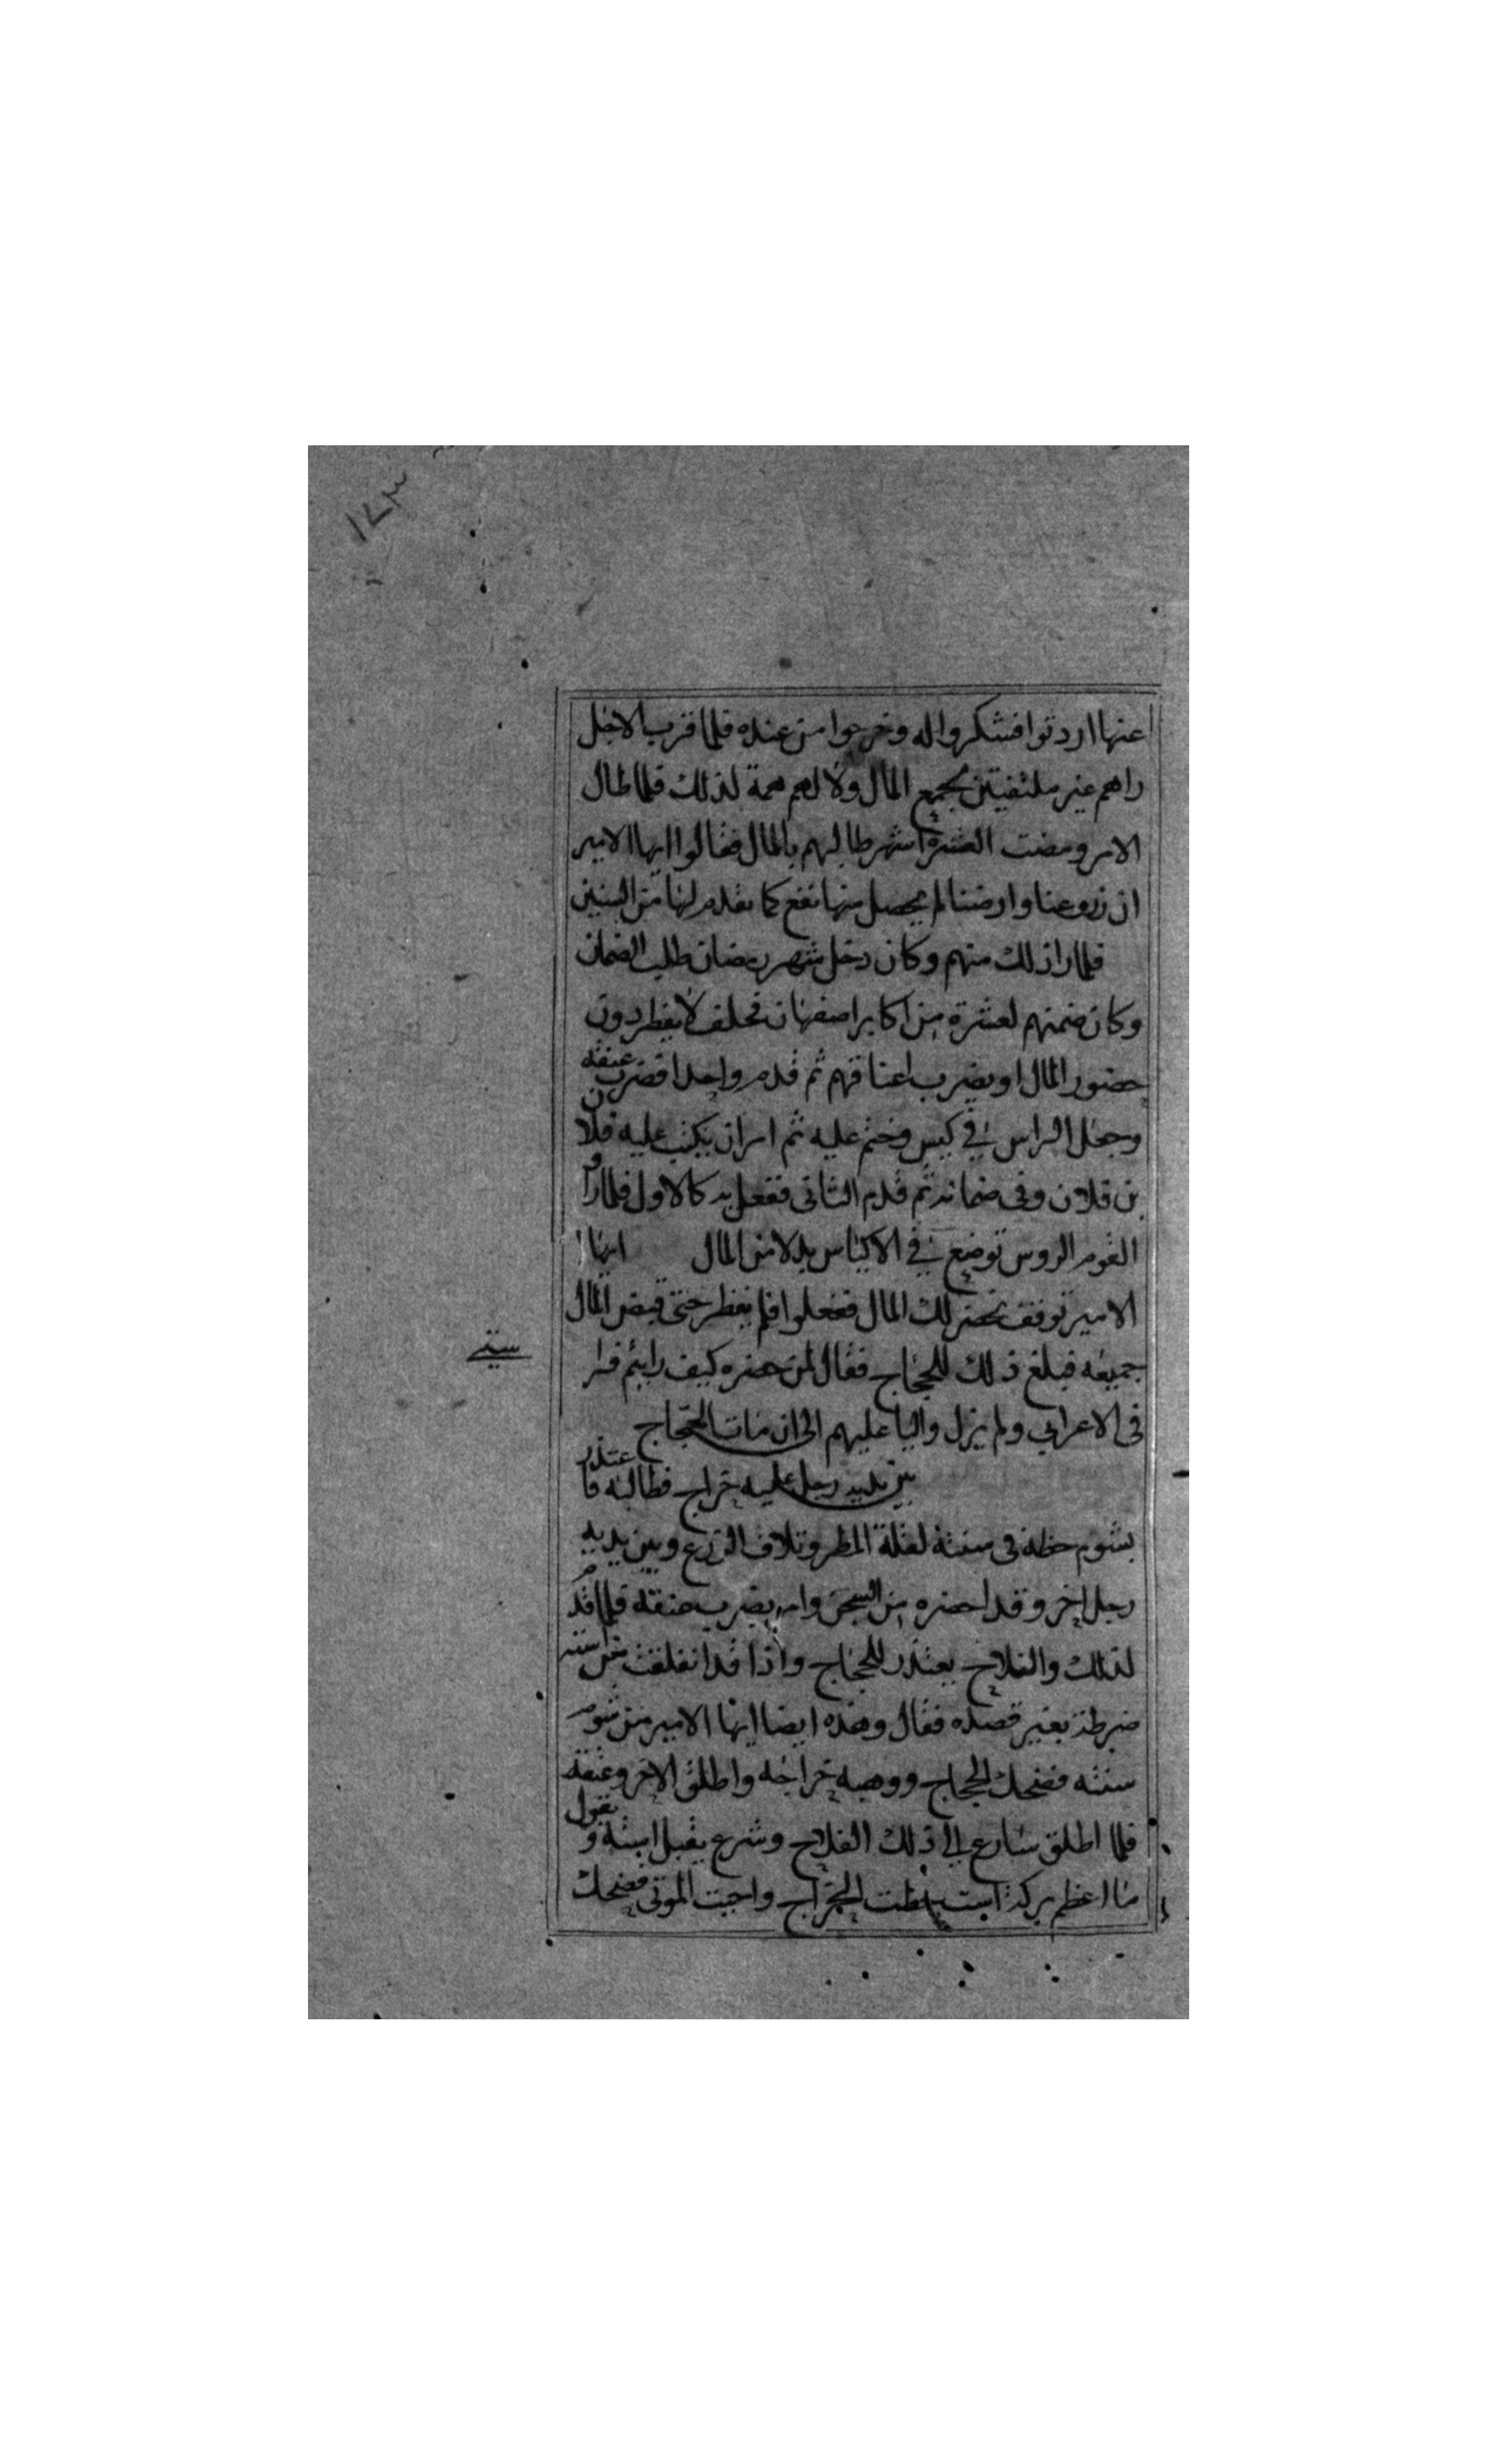 ١٧٣
عنها اردتوا فشكروا له وخرجوا من عنده فلما قرب الاجل
راهم غير ملتفتين بجمع المال ولا لهم همة لذلك فلما طال
الامر ومضت العشرة اشهر طالبهم بالمال فقالوا ايها الامير
ان زروعنا وارضنا لم يحصل منها نفع كما تقدم لنا من السنين
فلما را ذلك منهم وكان دخل شهر رمضان طلب الضمان
وكان ضمنهم لعشرة من اكابر اصفهان فحلف لا يفطر دون
حضور المال او يضرب اعناقهم ثم قدم واحدا فضرب عنقه
وجعل الراس في كيس وختم عليه ثم امر ان يكتب عليه فلان
بن فلان وفى ضمانه ثم قدم الثانى ففعل به كالاول فلما راو
القوم الروس توضع في الاكياس بدلا من المال ايها
الامير توقف نحضر لك المال ففعلوا فلم يفطر حتى قبض المال
جميعه فبلغ ذلك للحجاج فقال لمن حضره كيف رايتم فرا
ستي
فى الاعرابي ولم يزل واليا عليهم الى ان مات الحجاج
بين يديه رجل عليه خراج فطالبه فاعتذر
بشوم حظه فى سنته لقلة المطر وتلاف الزرع وبين يديه
رجل اخر وقد احضره من السجن وامر بضرب عنقه فلما قدم
لذلك والفلاح يعتذر للحجاج واذا قد انفلقت من استه
ضرطة بغير قصده فقال وهذه ايضا ايها الامير من شوم
سنته فضحك الحجاج ووهبه خراجه واطلق الاخر وعتقه
فلما اطلق سارع الى ذلك الفلاح وشرع يقبل استه ويقول
ما اعظم بركة است اسقطت الخراج واحيت الموتى فضحك